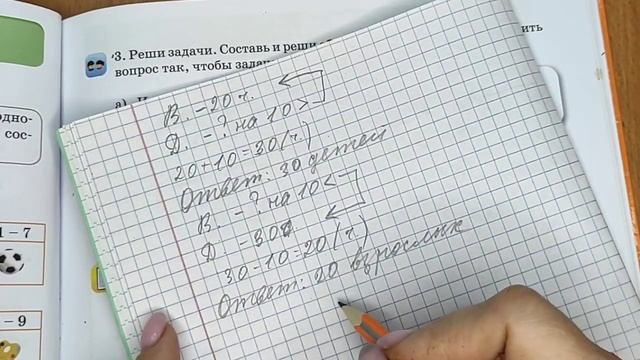 3. Реши задачи. Составь и реши
вопрос так, чтобы
а)
дно-
сос-
1 – 7
– 9
В. – 20 ч.
Д. – ? на 10 >
20 + 10 = 30 (ч.)
Ответ: 30 детей
В. – ? на 10 <
Д. – 30
30 – 10 = 20 (ч.)
Ответ: 20 взрослых